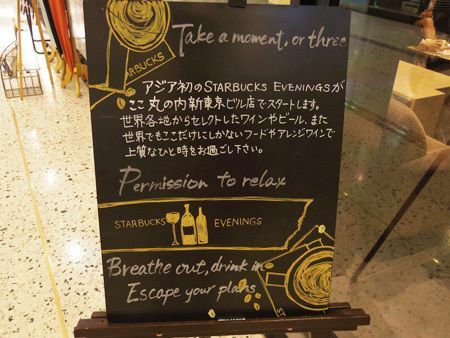 Take a moment, or three
STARBUCKS
アジア初のSTARBUCKS EVENINGSが
ここ丸の内新東京ビル店でスタートします。
世界各地からセレクトしたワインやビール、また
世界でもここだけにしかないフードやアレンジワインで
上質なひと時をお過ごし下さい。
Permission to relax
STARBUCKS EVENINGS
Breathe out, drink in
Escape your plans